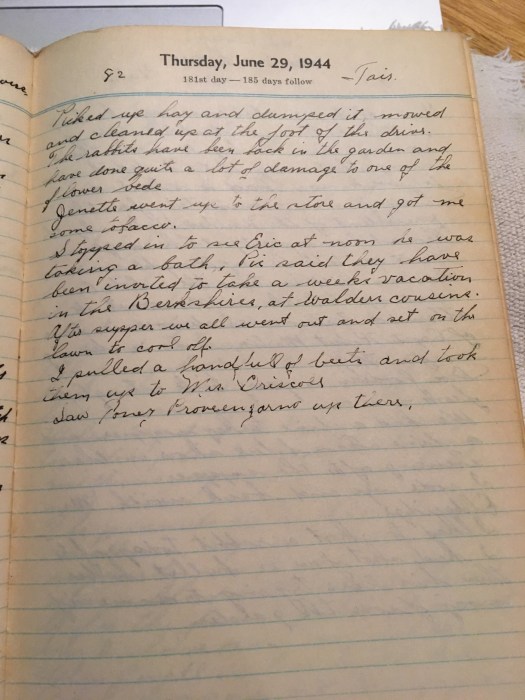 Thursday, June 29, 1944
82
181st day — 185 days follow
—Fair.
Picked up hay and dumped it, mowed
and cleaned up at the foot of the drive.
The rabbits have been back in the garden and
have done quite a lot of damage to one of the
flower beds
Jenette went up to the store and got me
some tobacco.
Stopped in to see Eric at noon he was
taking a bath, said they have
been invited to take a weeks vacation
in the Berkshires, at cousins.
supper we all went out and set on the
lawn to cool off.
I pulled a handfull of beets and took
them up to Driscoes
Saw up there,